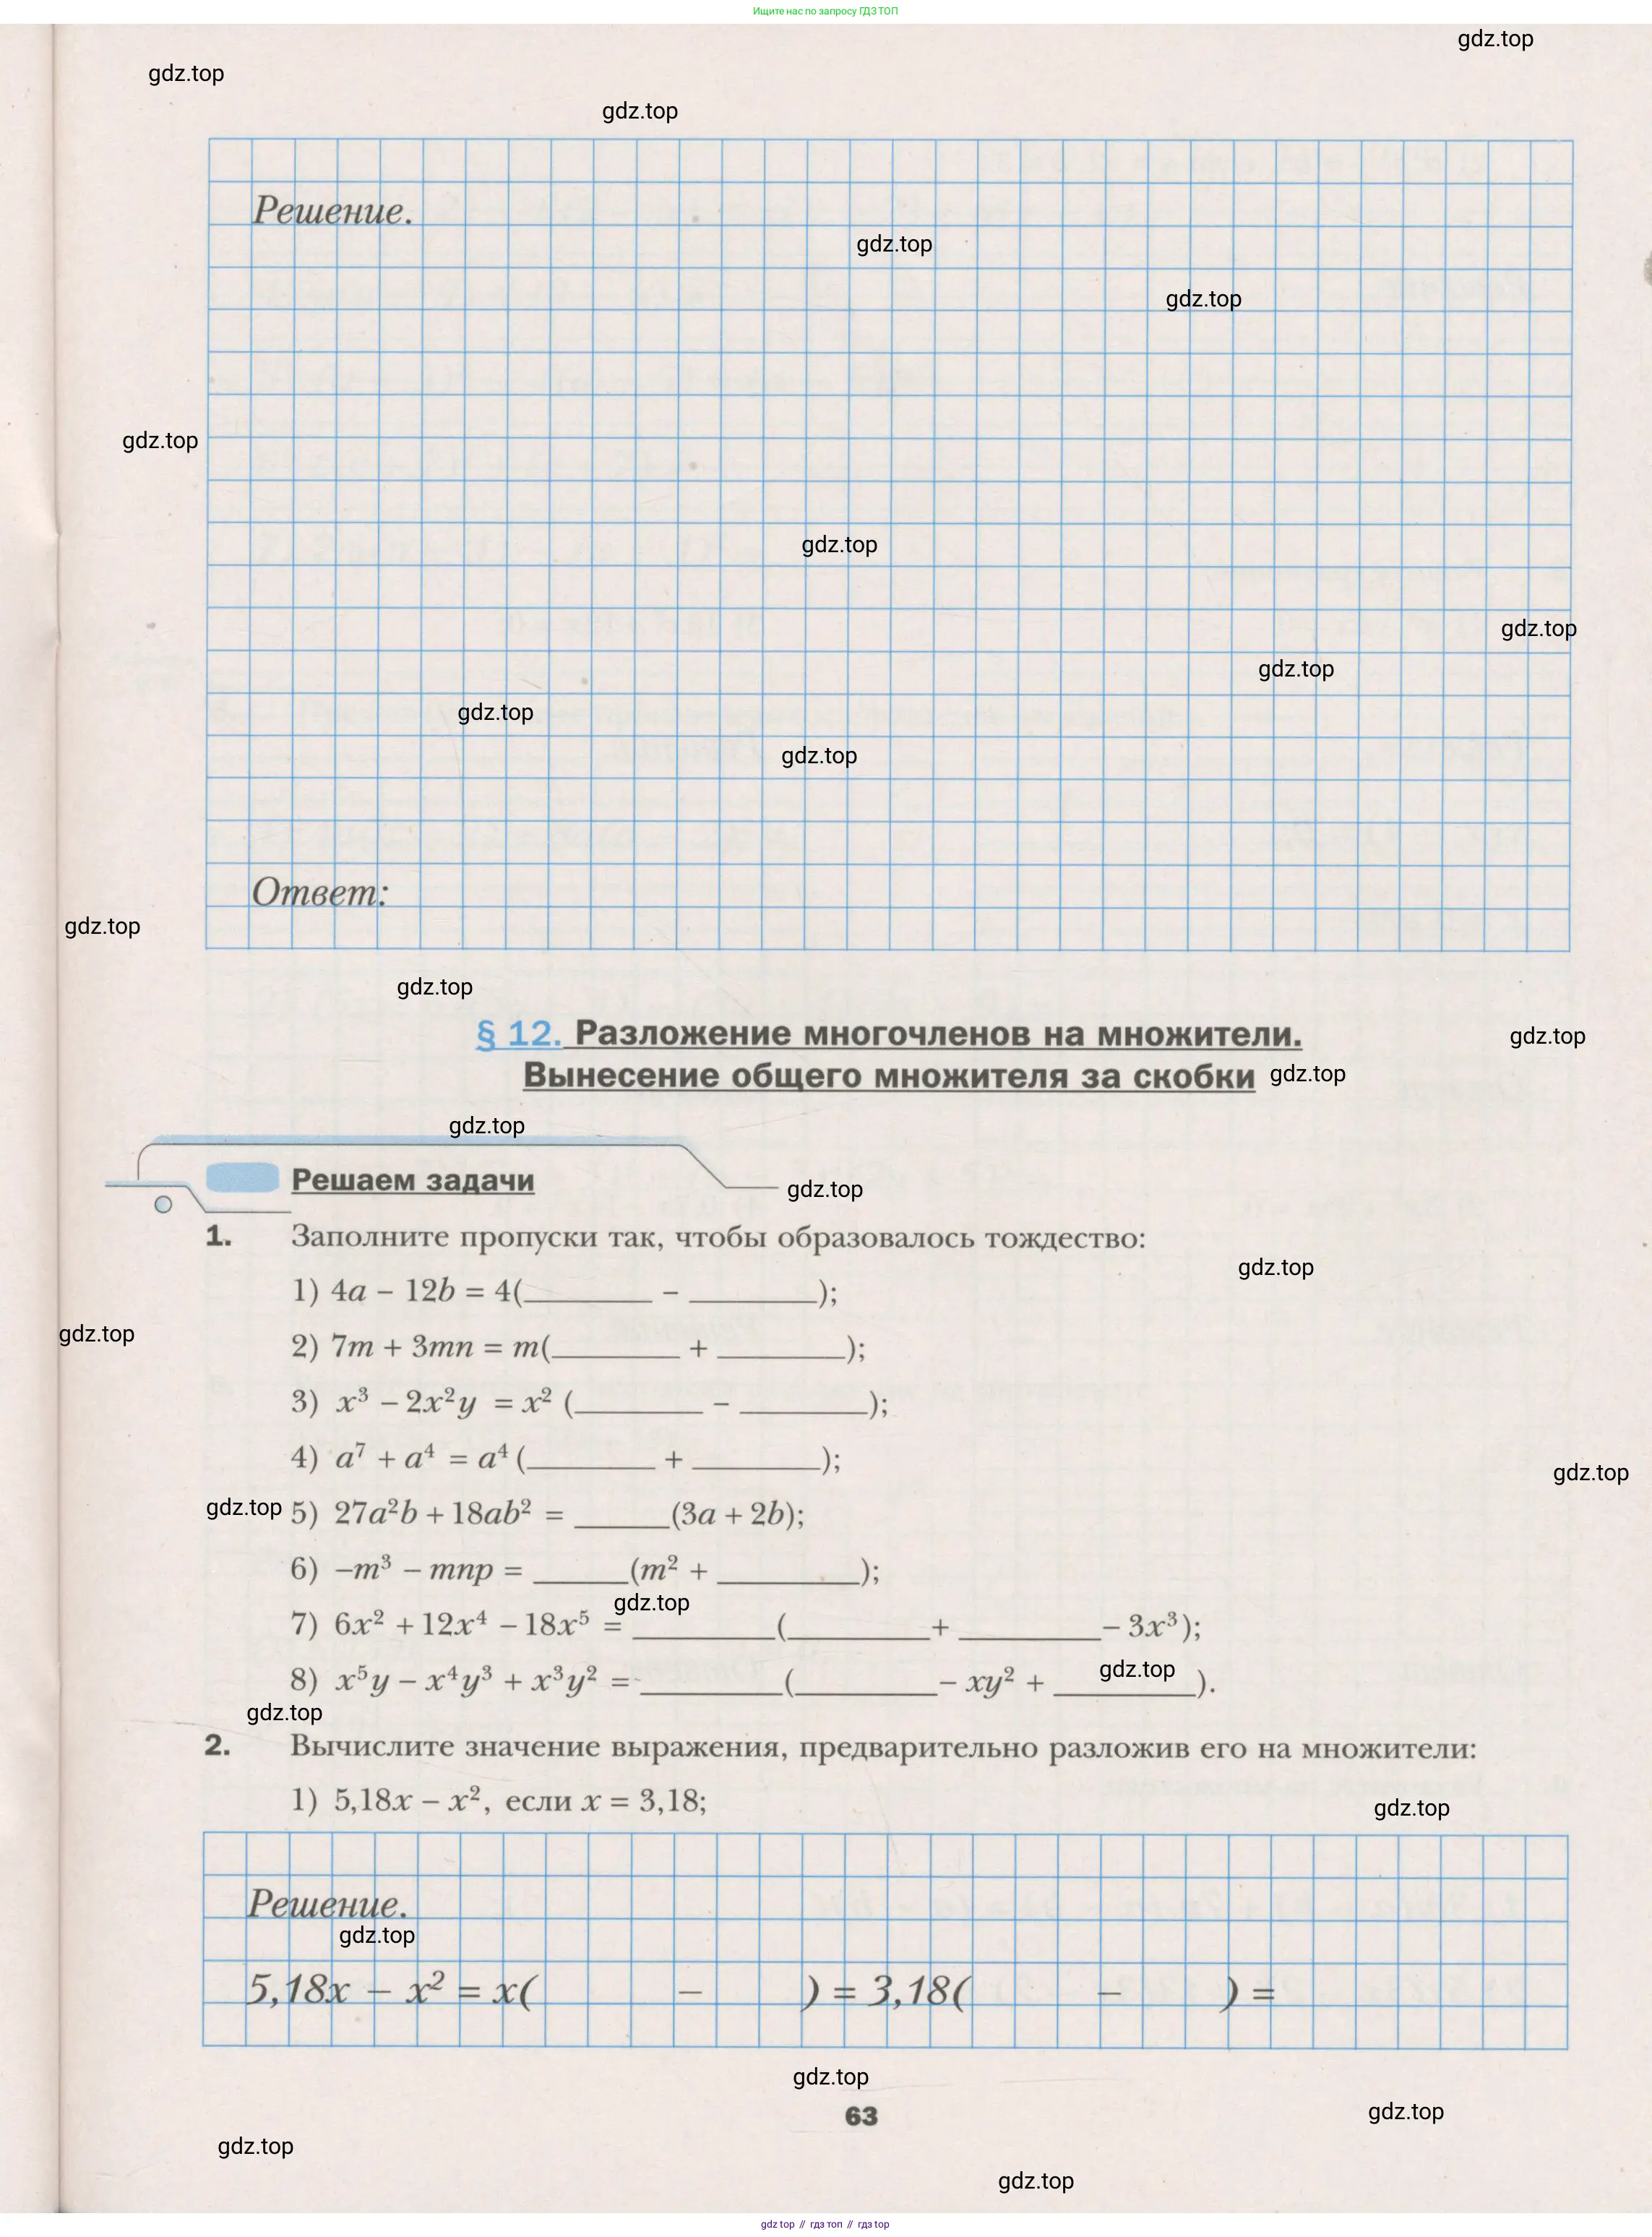 Ищите нас по запросу ГДЗ ТОП
gdz.top
gdz.top
gdz.top
Решение.
gdz.top
gdz.top
gdz.top
gdz.top
gdz.top
gdz.top
gdz.top
gdz.top
Ответ:
gdz.top
gdz.top
§ 12. Разложение многочленов на множители.
gdz.top
Вынесение общего множителя за скобки gdz.top
gdz.top
Решаем задачи
gdz.top
1. Заполните пропуски так, чтобы образовалось тождество:
gdz.top
1) 4a – 12b = 4(________ – ________);
gdz.top
2) 7m + 3mn = m(________ + ________);
3) x³ – 2x²y = x² (________ – ________);
4) a⁷ + a⁴ = a⁴ (________ + ________);
gdz.top
gdz.top 5) 27a²b + 18ab² = ______(3a + 2b);
6) –m³ – mnp = ______(m² + _________);
gdz.top
7) 6x² + 12x⁴ – 18x⁵ = _________(_________+ _________– 3x³);
8) x⁵y – x⁴y³ + x³y² = _________(_________– xy² + _________).
gdz.top
gdz.top
2. Вычислите значение выражения, предварительно разложив его на множители:
1) 5,18x – x², если x = 3,18;
gdz.top
Решение.
gdz.top
5,18x – x² = x( – ) = 3,18( – ) =
gdz.top
63
gdz.top
gdz.top
gdz.top
gdz top // гдз топ // гдз top